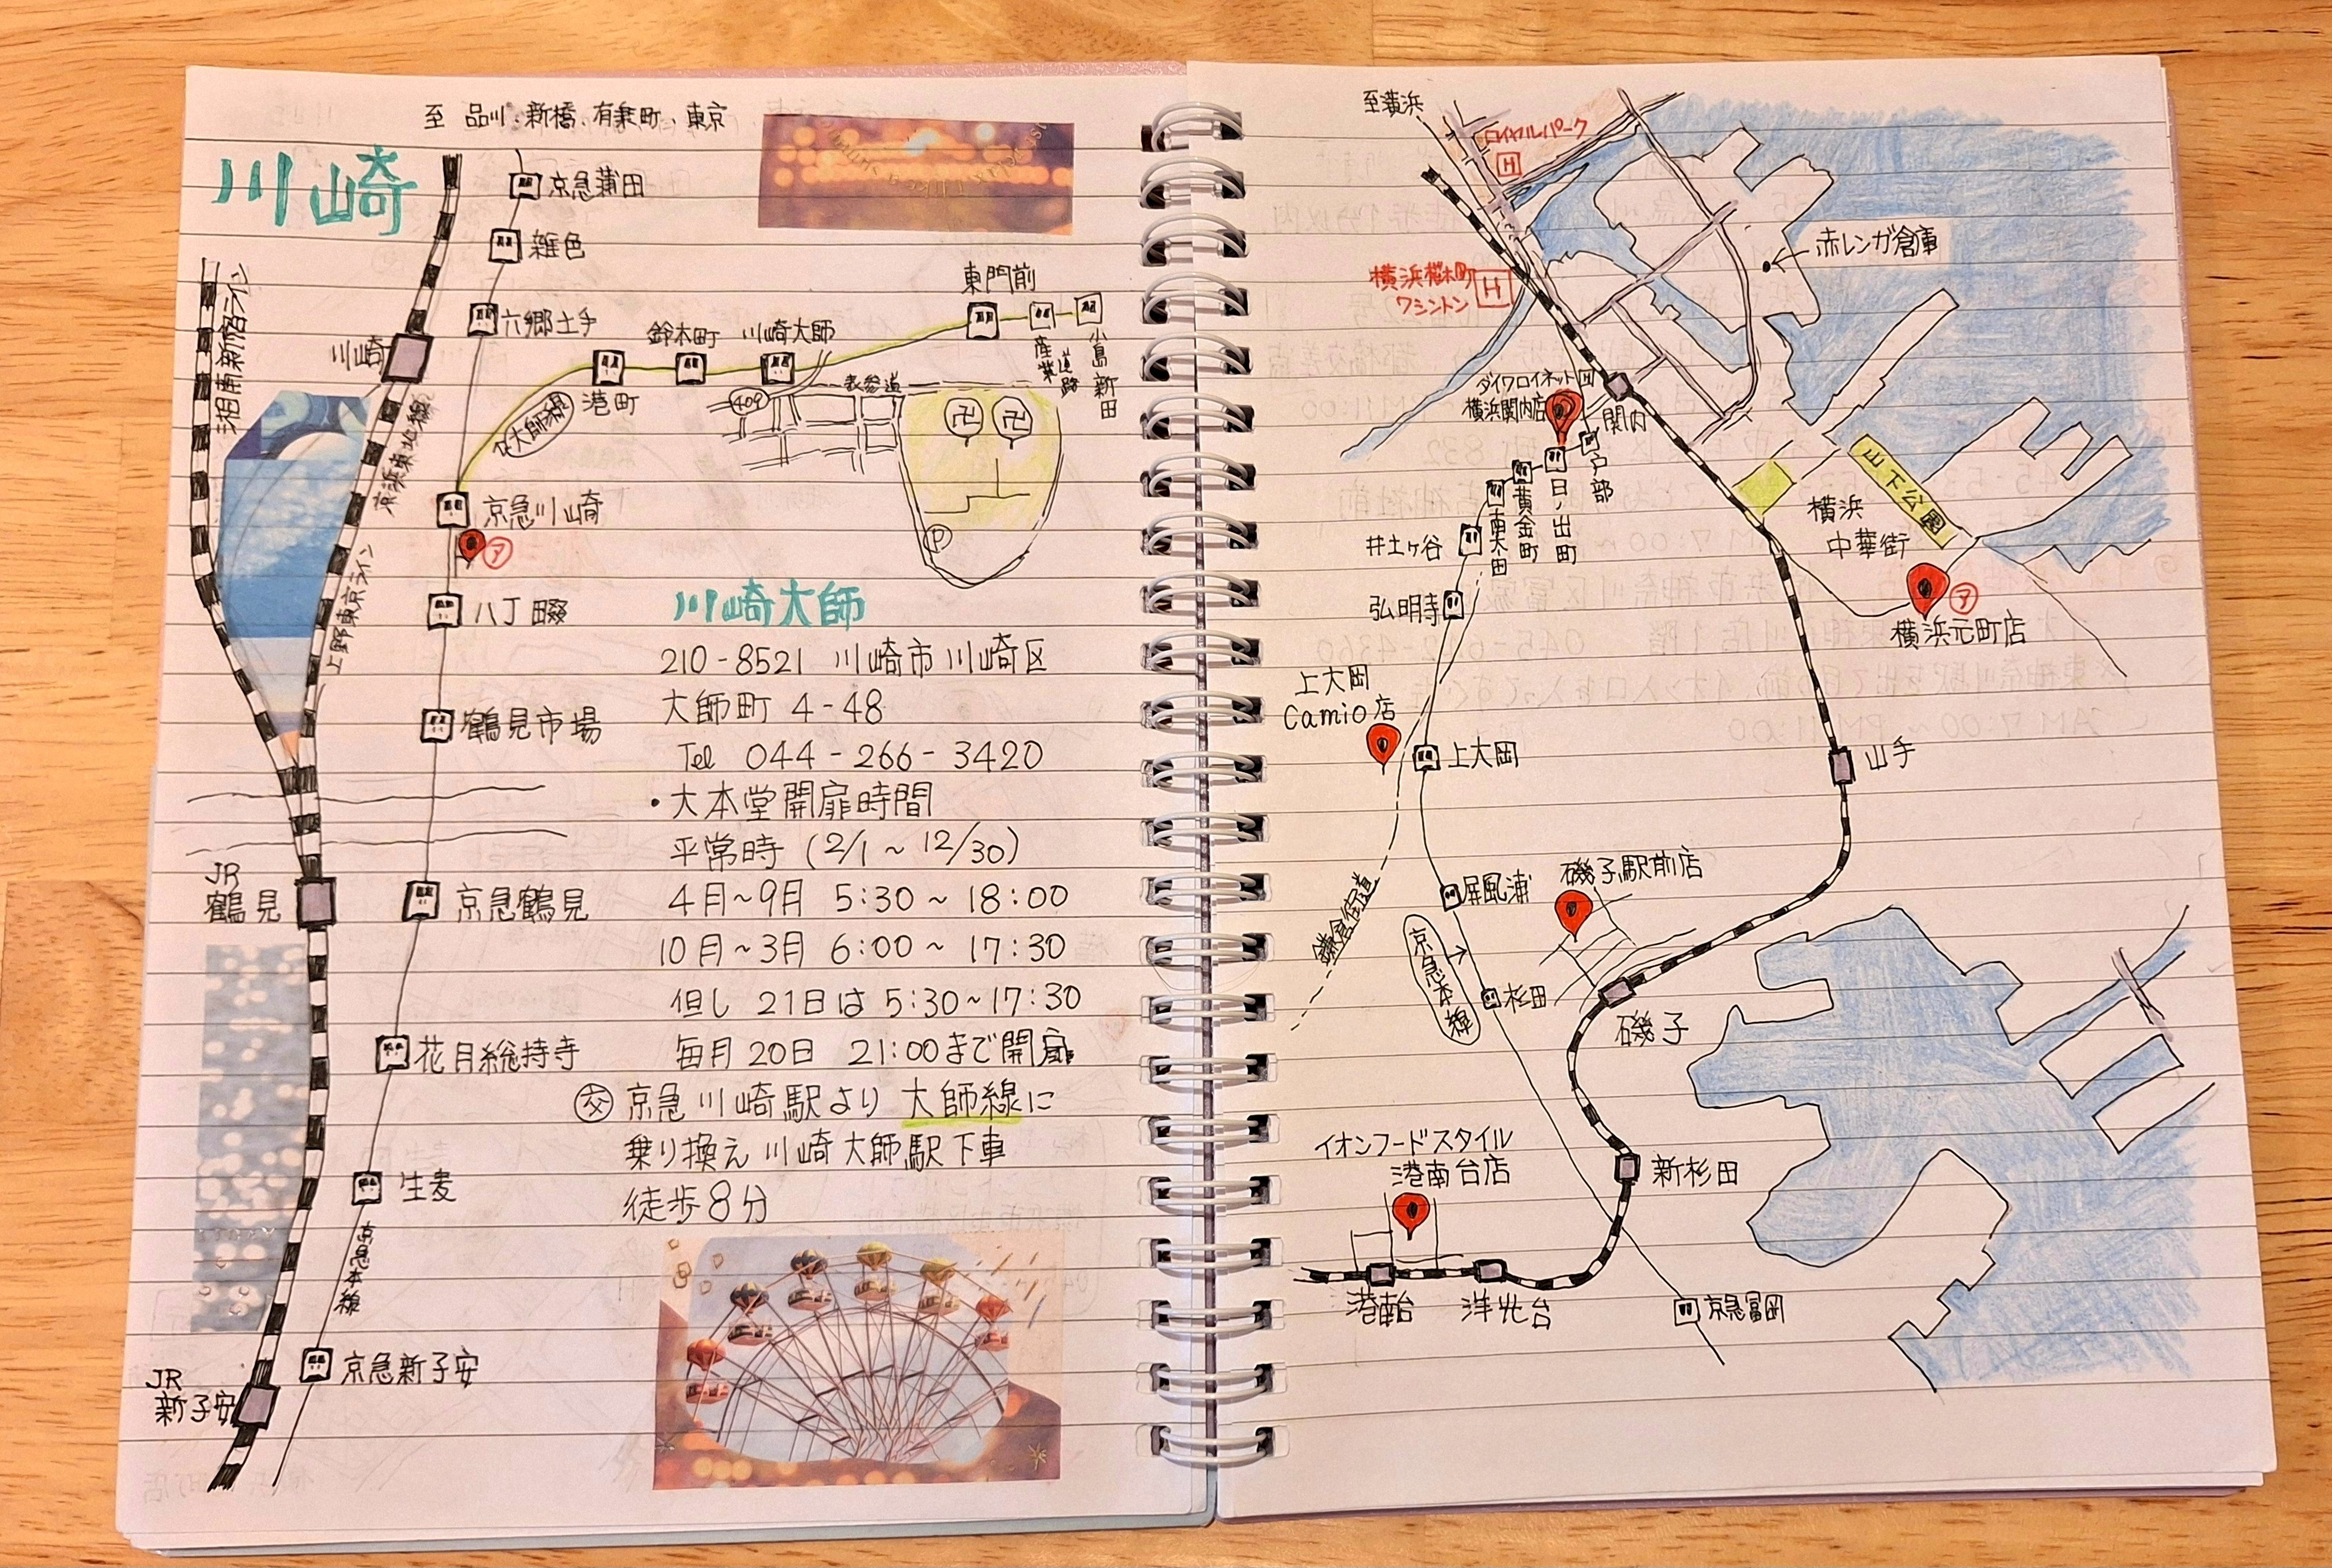 至 品川、新橋、有楽町、東京
川崎
京急蒲田
雑色
六郷土手
川崎
湘南新宿ライン
京浜東北線
上野東京ライン
東門前
鈴木町
川崎大師
港町
産業道路
小島新田
大師線
409
表参道
卍 卍
P
京急川崎
ア
八丁畷
鶴見市場
JR
鶴見
京急鶴見
花月総持寺
生麦
京急本線
京急新子安
JR
新子安
川崎大師
210-8521 川崎市川崎区
大師町 4-48
Tel 044-266-3420
・大本堂開扉時間
平常時 (2/1~12/30)
4月~9月 5:30~18:00
10月~3月 6:00~17:30
但し 21日は 5:30~17:30
毎月20日 21:00まで開扉
交 京急川崎駅より 大師線に
乗り換え 川崎大師駅下車
徒歩8分
至横浜
ロイヤルパーク
H
横浜桜木町
ワシントン
H
赤レンガ倉庫
ダイワロイネット H
横浜関内店
関内
戸部
日ノ出町
黄金町
南太田
井土ヶ谷
弘明寺
山下公園
横浜
中華街
ア
横浜元町店
上大岡
Camio店
上大岡
山手
屏風浦
磯子駅前店
鎌倉街道
京急本線
杉田
磯子
イオンフードスタイル
港南台店
新杉田
港南台
洋光台
京急富岡